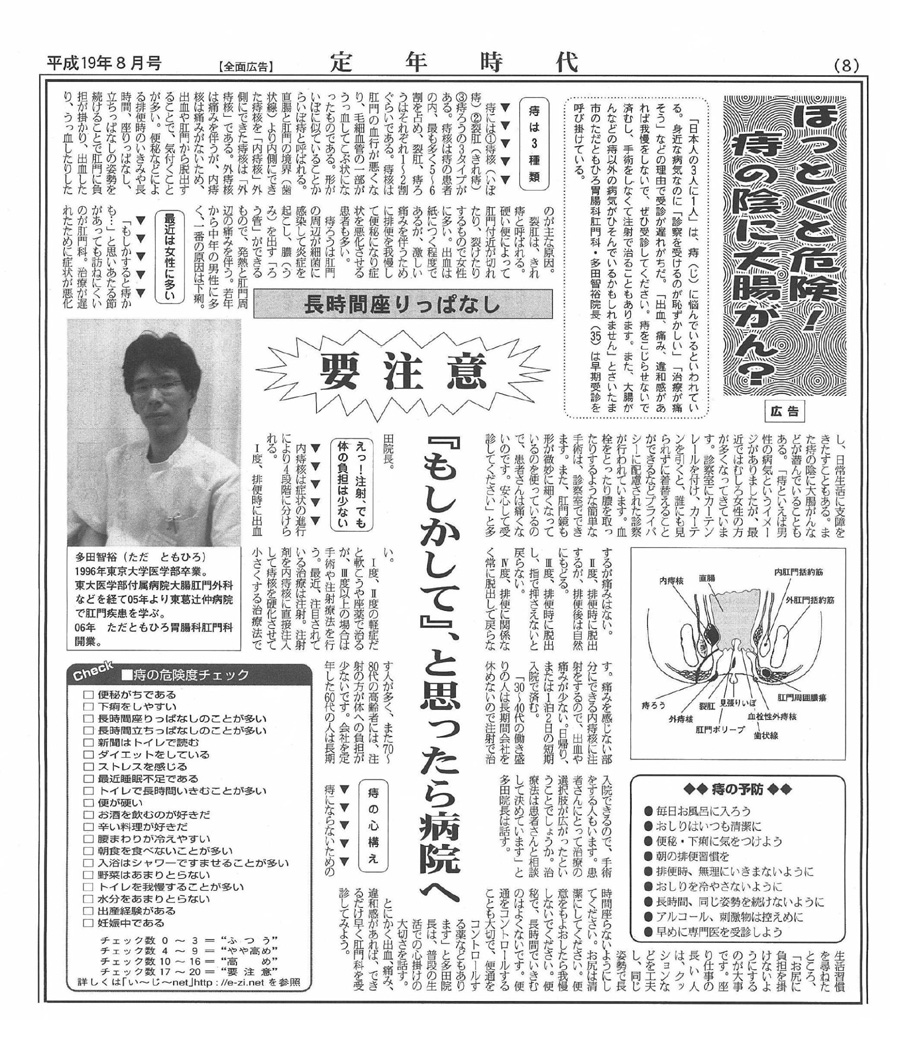 平成19年8月号
【全面広告】
定年時代
(8)
ほっとくと危険!
痔の陰に大腸がん?
広告
「日本人の3人に1人」は、痔(じ)に悩んでいるといわれてい
る。身近な病気なのに「診察を受けるのが恥ずかしい」「治療が痛
そう」などの理由で受診が遅れがちだ。「出血、痛み、違和感があ
れば我慢をしないで、ぜひ受診してください。痔をこじらせないで
済むし、手術をしなくて注射で治ることもあります。また、大腸が
んなどの痔以外の病気がひそんでいるかもしれません」とさいたま
市のただともひろ胃腸科肛門科・多田智裕院長(35)は早期受診を
呼び掛けている。
痔は3種類
▼▼▼▼▼
痔には①痔核(いぼ
痔)②裂肛(きれ痔)
③痔ろうの3タイプが
ある。痔核は痔の患者
の内、最も多く5~6
割を占め、裂肛、痔ろ
うはそれぞれ1~2割
ぐらいである。痔核は
肛門の血行が悪くな
り、毛細血管の一部が
うっ血してこぶ状にな
ったものである。形が
いぼに似ていることか
らいぼ痔と呼ばれる。
直腸と肛門の境界(歯
状線)より内側にでき
た痔核を「内痔核」外
側にできた痔核は「外
痔核」である。外痔核
は痛みを伴うが、内痔
核は痛みがないため、
出血や肛門から脱出す
ることで、気付くこと
が多い。便秘などによ
る排便時のいきみや長
時間、座りっぱなし、
立ちっぱなしの姿勢を
続けることで肛門に負
担が掛かり、出血した
り、うっ血したりした
のが主な原因。
裂肛は、きれ
痔と呼ばれる。
硬い便によって
肛門付近が切れ
たり、裂けたり
するもので女性
に多い。出血は
紙につく程度で
あるが、激しい
痛みを伴うため
に排便を我慢し
て便秘になり症
状を悪化させる
患者も多い。
痔ろうは肛門
の周辺が細菌に
感染して炎症を
起こし、膿(う
み)を出す「ろ
う管」ができる
もので、発熱と肛門周
辺の痛みを伴う。若年
から中年の男性に多
く、一番の原因は下痢。
最近は女性に多い
▼▼▼▼▼
「もしかすると痔か
も…」と思いあたる節
があっても訪ねにくい
のが肛門科。治療が遅
れたために症状が悪化
長時間座りっぱなし
要注意
『もしかして』、と思ったら病院へ
し、日常生活に支障を
きたすこともある。ま
た痔の陰に大腸がんな
どが潜んでいることも
ある。「痔といえば男
性の病気というイメー
ジがありましたが、最
近ではむしろ女性の方
が多くなってきていま
す。診察室にカーテン
レールを付け、カーテ
ンを引くと、誰にも見
られずに着替えること
ができるなどプライバ
シーに配慮された診察
が行われています。血
栓をとったり膿を取っ
たりするような簡単な
手術は、診察室ででき
ます。また、肛門鏡も
形が微妙に細くなって
いるのを使っているの
で、患者さんは痛くな
いのです。安心して受
診してください」と多
田院長。
えっ!注射、でも
体の負担は少ない
▼▼▼▼▼
内痔核は症状の進行
により4段階に分けら
れる。
Ⅰ度、排便時に出血
するが痛みはない。
Ⅱ度、排便時に脱出
するが、排便後は自然
にもどる。
Ⅲ度、排便時に脱出
し、指で押さえないと
戻らない。
Ⅳ度、排便に関係な
く常に脱出して戻らな
い。
Ⅰ度、Ⅱ度の軽症だ
と軟こうや座薬で治る
が、Ⅲ度以上の場合は
手術や注射療法を行
う。最近、注目されて
いる治療は注射。注射
剤を内痔核に直接注入
して痔核を硬化させて
小さくする治療法で
す。痛みを感じない部
分にできる内痔核に注
射をするので、出血や
痛みが少ない。日帰り、
または1泊2日の短期
入院で済む。
「30~40代の働き盛
りの人は長期間会社を
休めないので注射で治
す人が多く、また70~
80代の高齢者には、注
射の方が体への負担が
少ないです。会社を定
年した60代の人は長期
入院できるので、手術
をする人もいます。患
者さんにとって治療の
選択肢が広がったとい
うことでしょうか。治
療法は患者さんと相談
して決めています」と
多田院長は話す。
痔の心構え
▼▼▼▼▼
痔にならないための
生活習慣
を尋ねた
ところ、
「お尻に
負担を掛
けないよ
うにする
のが大事
です。座
り仕事の
長い人
は、クッ
ションな
どを工夫
し、同じ
姿勢で長
時間座らないようにし
てください。お尻は清
潔にしてください。便
意をもよおしたら我慢
しないでください。便
秘で、長時間でいきむ
のはよくないです。便
通をコントロールする
ことも大切で、便通を
コントロールす
る薬などもあり
ます」と多田院
長は、普段の生
活での心掛けの
大切さを話す。
とにかく出血、痛み、
違和感があれば、でき
るだけ早く肛門科を受
診してみよう。
多田智裕(ただ ともひろ)
1996年東京大学医学部卒業。
東大医学部付属病院大腸肛門外科
などを経て05年より東葛辻仲病院
で肛門疾患を学ぶ。
06年 ただともひろ胃腸科肛門科
開業。
内痔核
直腸
内肛門括約筋
外肛門括約筋
肛門周囲膿瘍
痔ろう
裂肛
見張りいぼ
血栓性外痔核
外痔核
肛門ポリープ
歯状線
Check
■痔の危険度チェック
□ 便秘がちである
□ 下痢をしやすい
□ 長時間座りっぱなしのことが多い
□ 長時間立ちっぱなしのことが多い
□ 新聞はトイレで読む
□ ダイエットをしている
□ ストレスを感じる
□ 最近睡眠不足である
□ トイレで長時間いきむことが多い
□ 便が硬い
□ お酒を飲むのが好きだ
□ 辛い料理が好きだ
□ 腰まわりが冷えやすい
□ 朝食を食べないことが多い
□ 入浴はシャワーですませることが多い
□ 野菜はあまりとらない
□ トイレを我慢することが多い
□ 水分をあまりとらない
□ 出産経験がある
□ 妊娠中である
チェック数 0 ~ 3 =“ふつう”
チェック数 4 ~ 9 =“やや高め”
チェック数 10 ~ 16 =“高 め”
チェック数 17 ~ 20 =“要注意”
詳しくは「い~じ~net」http://e-zi.net を参照
◆◆ 痔の予防 ◆◆
● 毎日お風呂に入ろう
● おしりはいつも清潔に
● 便秘・下痢に気をつけよう
● 朝の排便習慣を
● 排便時、無理にいきまないように
● おしりを冷やさないように
● 長時間、同じ姿勢を続けないように
● アルコール、刺激物は控えめに
● 早めに専門医を受診しよう